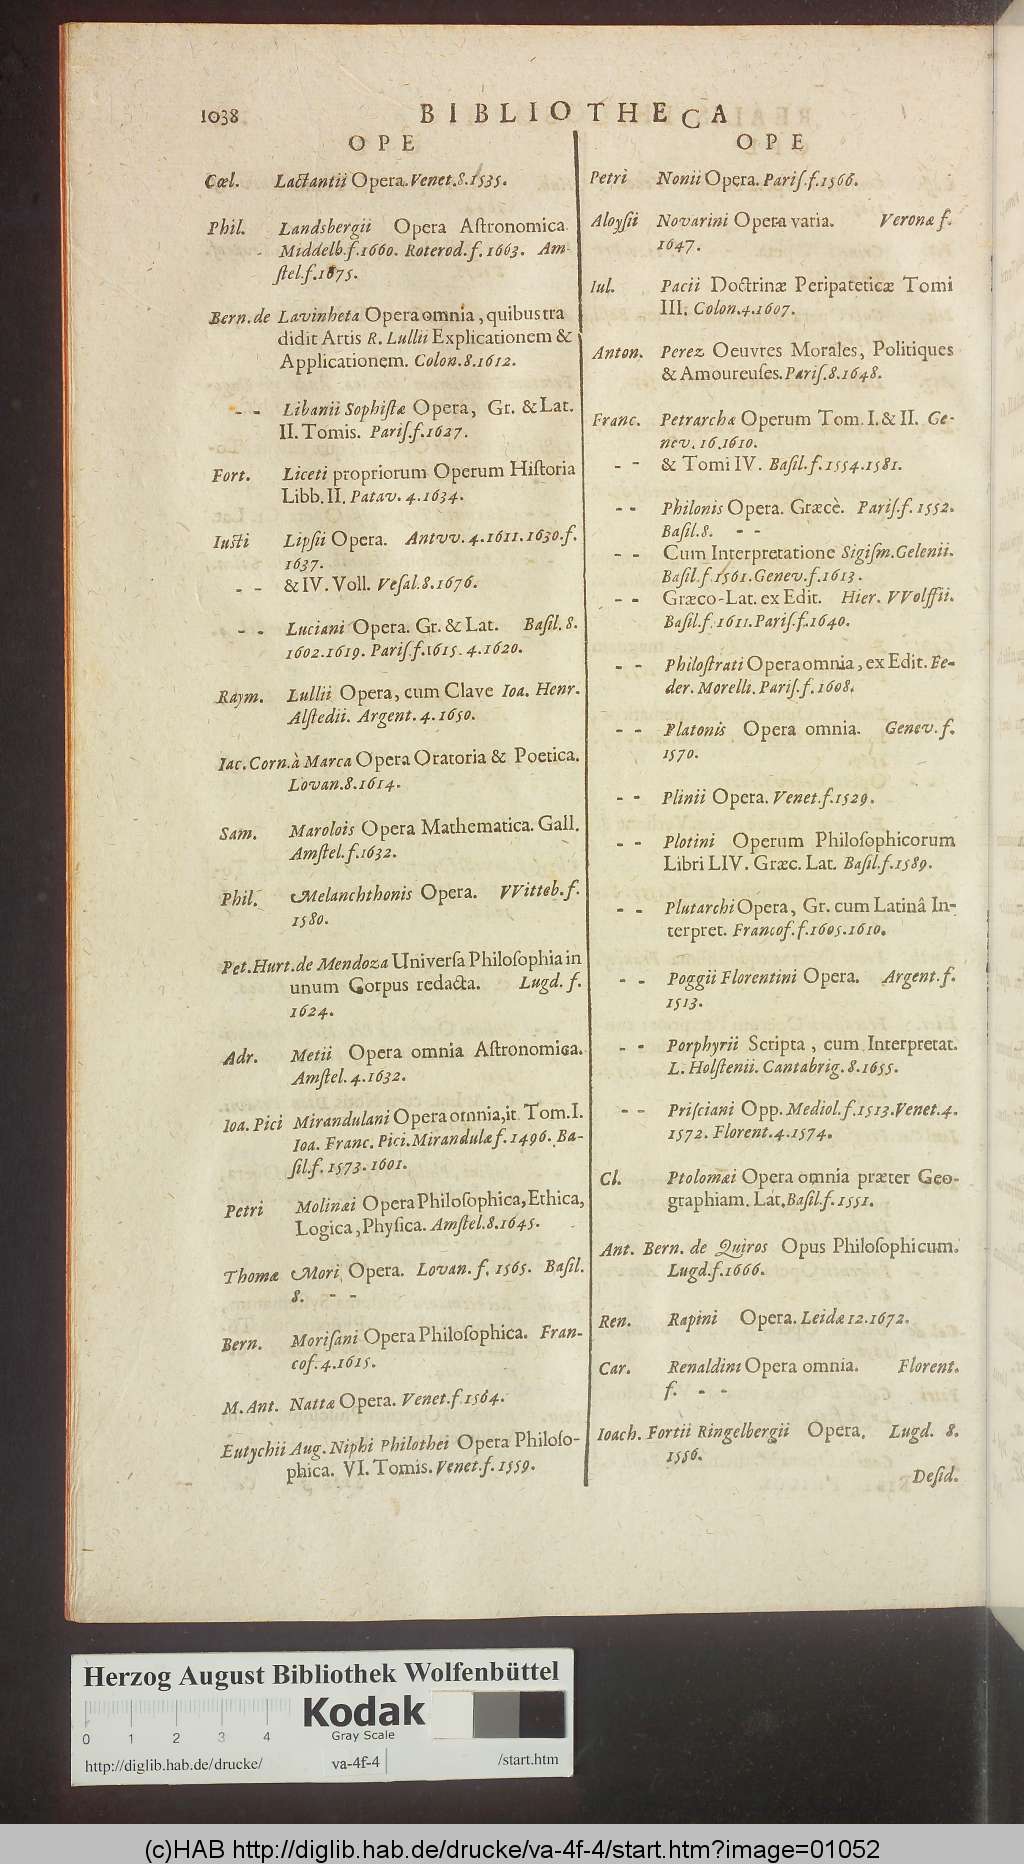 1038 BIBLIOTHECA
OPE
Cœl. Lactantii Opera. Venet. 8. 1535.
Phil. Landsbergii Opera Aſtronomica
Middelb. f. 1660. Roterod. f. 1663. Am-
ſtel. f. 1675.
Bern. de Lavinheta Opera omnia, quibus tra
didit Artis R. Lullii Explicationem &
Applicationem. Colon. 8. 1612.
- - Libanii Sophiſtæ Opera, Gr. & Lat.
II. Tomis. Pariſ. f. 1627.
Fort. Liceti propriorum Operum Hiſtoria
Libb. II. Patav. 4. 1634.
Iuſti Lipſii Opera. Antvv. 4. 1611. 1630. f.
1637.
- - & IV. Voll. Veſal. 8. 1676.
- - Luciani Opera. Gr. & Lat. Baſil. 8.
1602. 1619. Pariſ. f. 1615. 4. 1620.
Raym. Lullii Opera, cum Clave Ioa. Henr.
Alſtedii. Argent. 4. 1650.
Iac. Corn. à Marca Opera Oratoria & Poetica.
Lovan. 8. 1614.
Sam. Marolois Opera Mathematica. Gall.
Amſtel. f. 1632.
Phil. Melanchthonis Opera. VVitteb. f.
1580.
Pet. Hurt. de Mendoza Univerſa Philoſophia in
unum Corpus redacta. Lugd. f.
1624.
Adr. Metii Opera omnia Aſtronomica.
Amſtel. 4. 1632.
Ioa. Pici Mirandulani Opera omnia, it. Tom. I.
Ioa. Franc. Pici. Mirandulæ f. 1496. Ba-
ſil. f. 1573. 1601.
Petri Molinæi Opera Philoſophica, Ethica,
Logica, Phyſica. Amſtel. 8. 1645.
Thomæ Mori Opera. Lovan. f. 1565. Baſil.
8. - -
Bern. Moriſani Opera Philoſophica. Fran-
cof. 4. 1615.
M. Ant. Nattæ Opera. Venet. f. 1564.
Eutychii Aug. Niphi Philothei Opera Philoſo-
phica. VI. Tomis. Venet. f. 1559.
OPE
Petri Nonii Opera. Pariſ. f. 1566.
Aloyſii Novarini Opera varia. Veronæ f.
1647.
Iul. Pacii Doctrinæ Peripateticæ Tomi
III. Colon. 4. 1607.
Anton. Perez Oeuvres Morales, Politiques
& Amoureuſes. Pariſ. 8. 1648.
Franc. Petrarchæ Operum Tom. I. & II. Ge-
nev. 16. 1610.
- - & Tomi IV. Baſil. f. 1554. 1581.
- - Philonis Opera. Græcè. Pariſ. f. 1552.
Baſil. 8. - -
- - Cum Interpretatione Sigiſm. Gelenii.
Baſil. f. 1561. Genev. f. 1613.
- - Græco-Lat. ex Edit. Hier. VVolffii.
Baſil. f. 1611. Pariſ. f. 1640.
- - Philoſtrati Opera omnia, ex Edit. Fe-
der. Morelli. Pariſ. f. 1608.
- - Platonis Opera omnia. Genev. f.
1570.
- - Plinii Opera. Venet. f. 1529.
- - Plotini Operum Philoſophicorum
Libri LIV. Græc. Lat. Baſil. f. 1589.
- - Plutarchi Opera, Gr. cum Latinâ In-
terpret. Francof. f. 1605. 1610.
- - Poggii Florentini Opera. Argent. f.
1513.
- - Porphyrii Scripta, cum Interpretat.
L. Holſtenii. Cantabrig. 8. 1655.
- - Priſciani Opp. Mediol. f. 1513. Venet. 4.
1572. Florent. 4. 1574.
Cl. Ptolomæi Opera omnia præter Geo-
graphiam. Lat. Baſil. f. 1551.
Ant. Bern. de Quiros Opus Philoſophicum.
Lugd. f. 1666.
Ren. Rapini Opera. Leidæ 12. 1672.
Car. Renaldini Opera omnia. Florent.
f. - -
Ioach. Fortii Ringelbergii Opera. Lugd. 8.
1556.
Deſid.
Herzog August Bibliothek Wolfenbüttel
Kodak
Gray Scale
0 1 2 3 4
http://diglib.hab.de/drucke/ va-4f-4 /start.htm
(c)HAB http://diglib.hab.de/drucke/va-4f-4/start.htm?image=01052